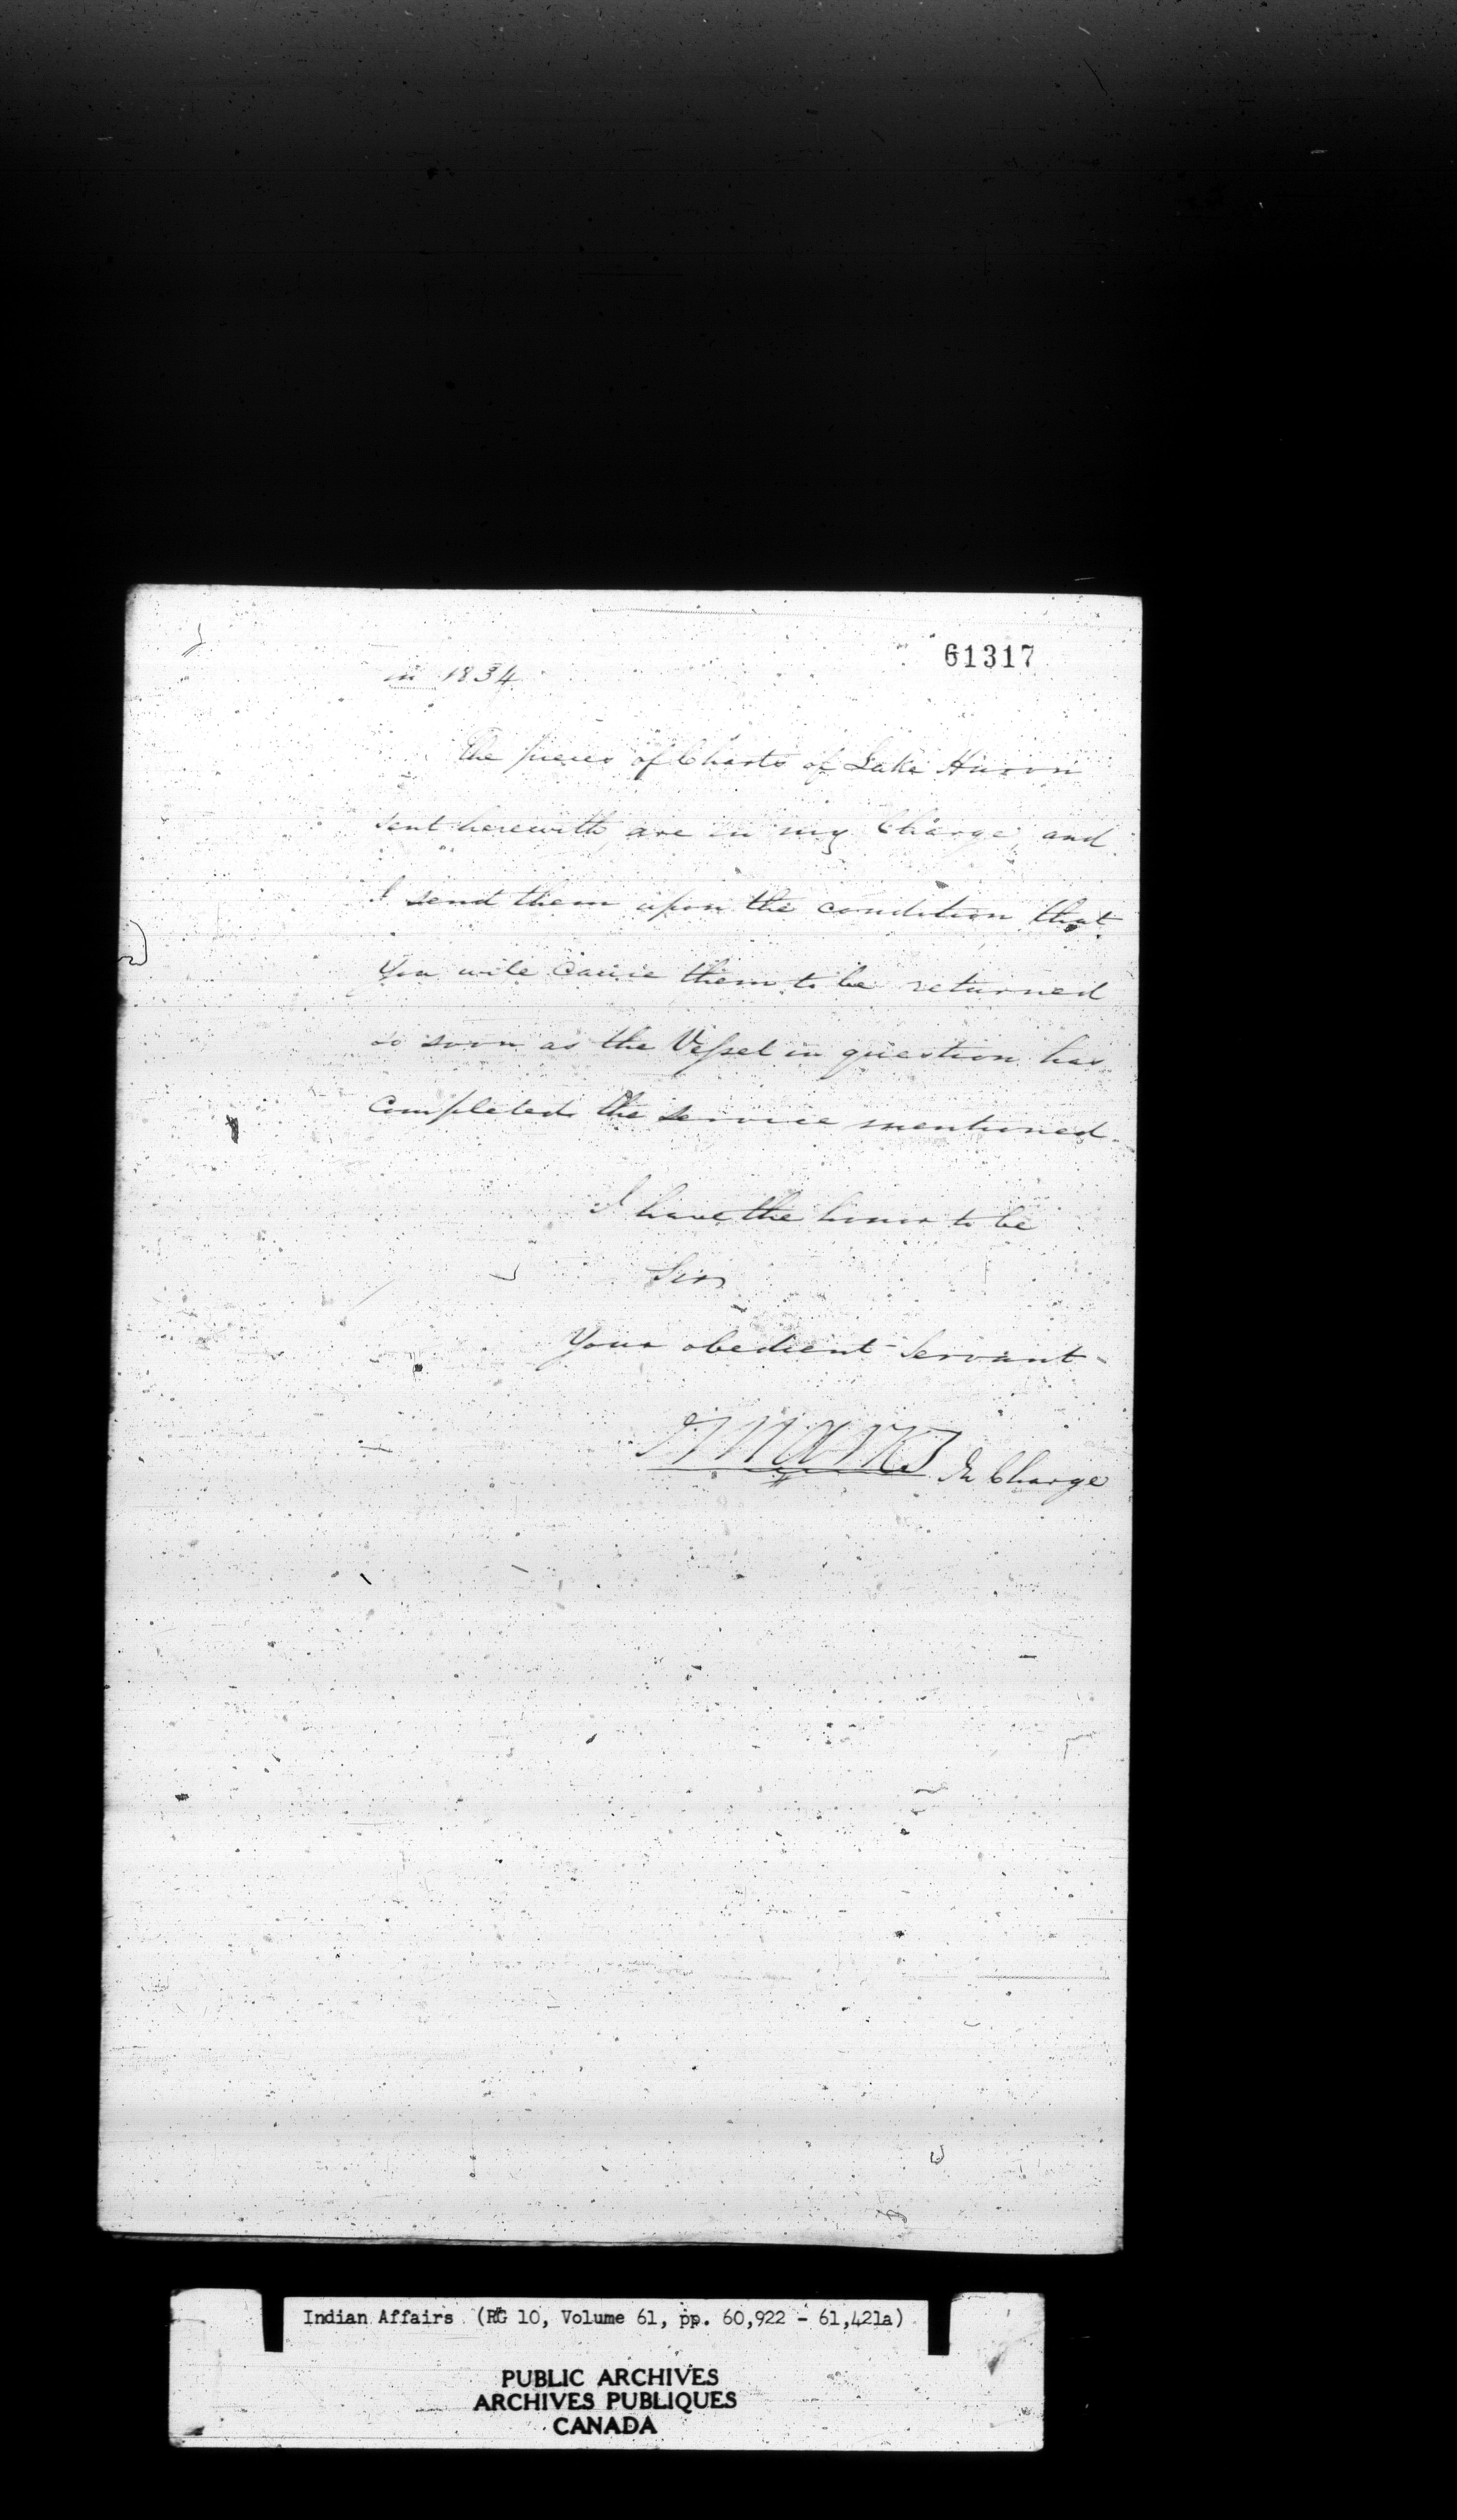 61317
in 1834
The pieces of Charts of Lake Huron
sent herewith, are in my Charge, and
I send them upon the condition that
you will cause them to be returned
so soon as the Vessel in question has
completed the service mentioned
I have the honor to be
Sir
Your obedient Servant
In Charge
Indian Affairs (RG 10, Volume 61, pp. 60,922 - 61,421a)
PUBLIC ARCHIVES
ARCHIVES PUBLIQUES
CANADA